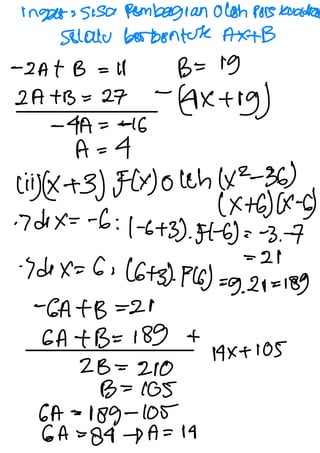 ingat, sisa Pembagian oleh Pers kuadrat
selalu berbentuk AX+B
-2A+B = 11 B = 19
2A+B = 27 - (4x+19)
-4A = -16
A = 4
(ii) (x+3) F(x) oleh (x²-36)
(x+6)(x-6)
·> di x = -6 : (-6+3). f(-6) = -3. -7
= 21
·> di x = 6, (6+3). P(6) = 9.21 = 189
-6A+B = 21
6A+B = 189 +
2B = 210 14x+105
B = 105
6A = 189-105
6A = 84 → A = 14